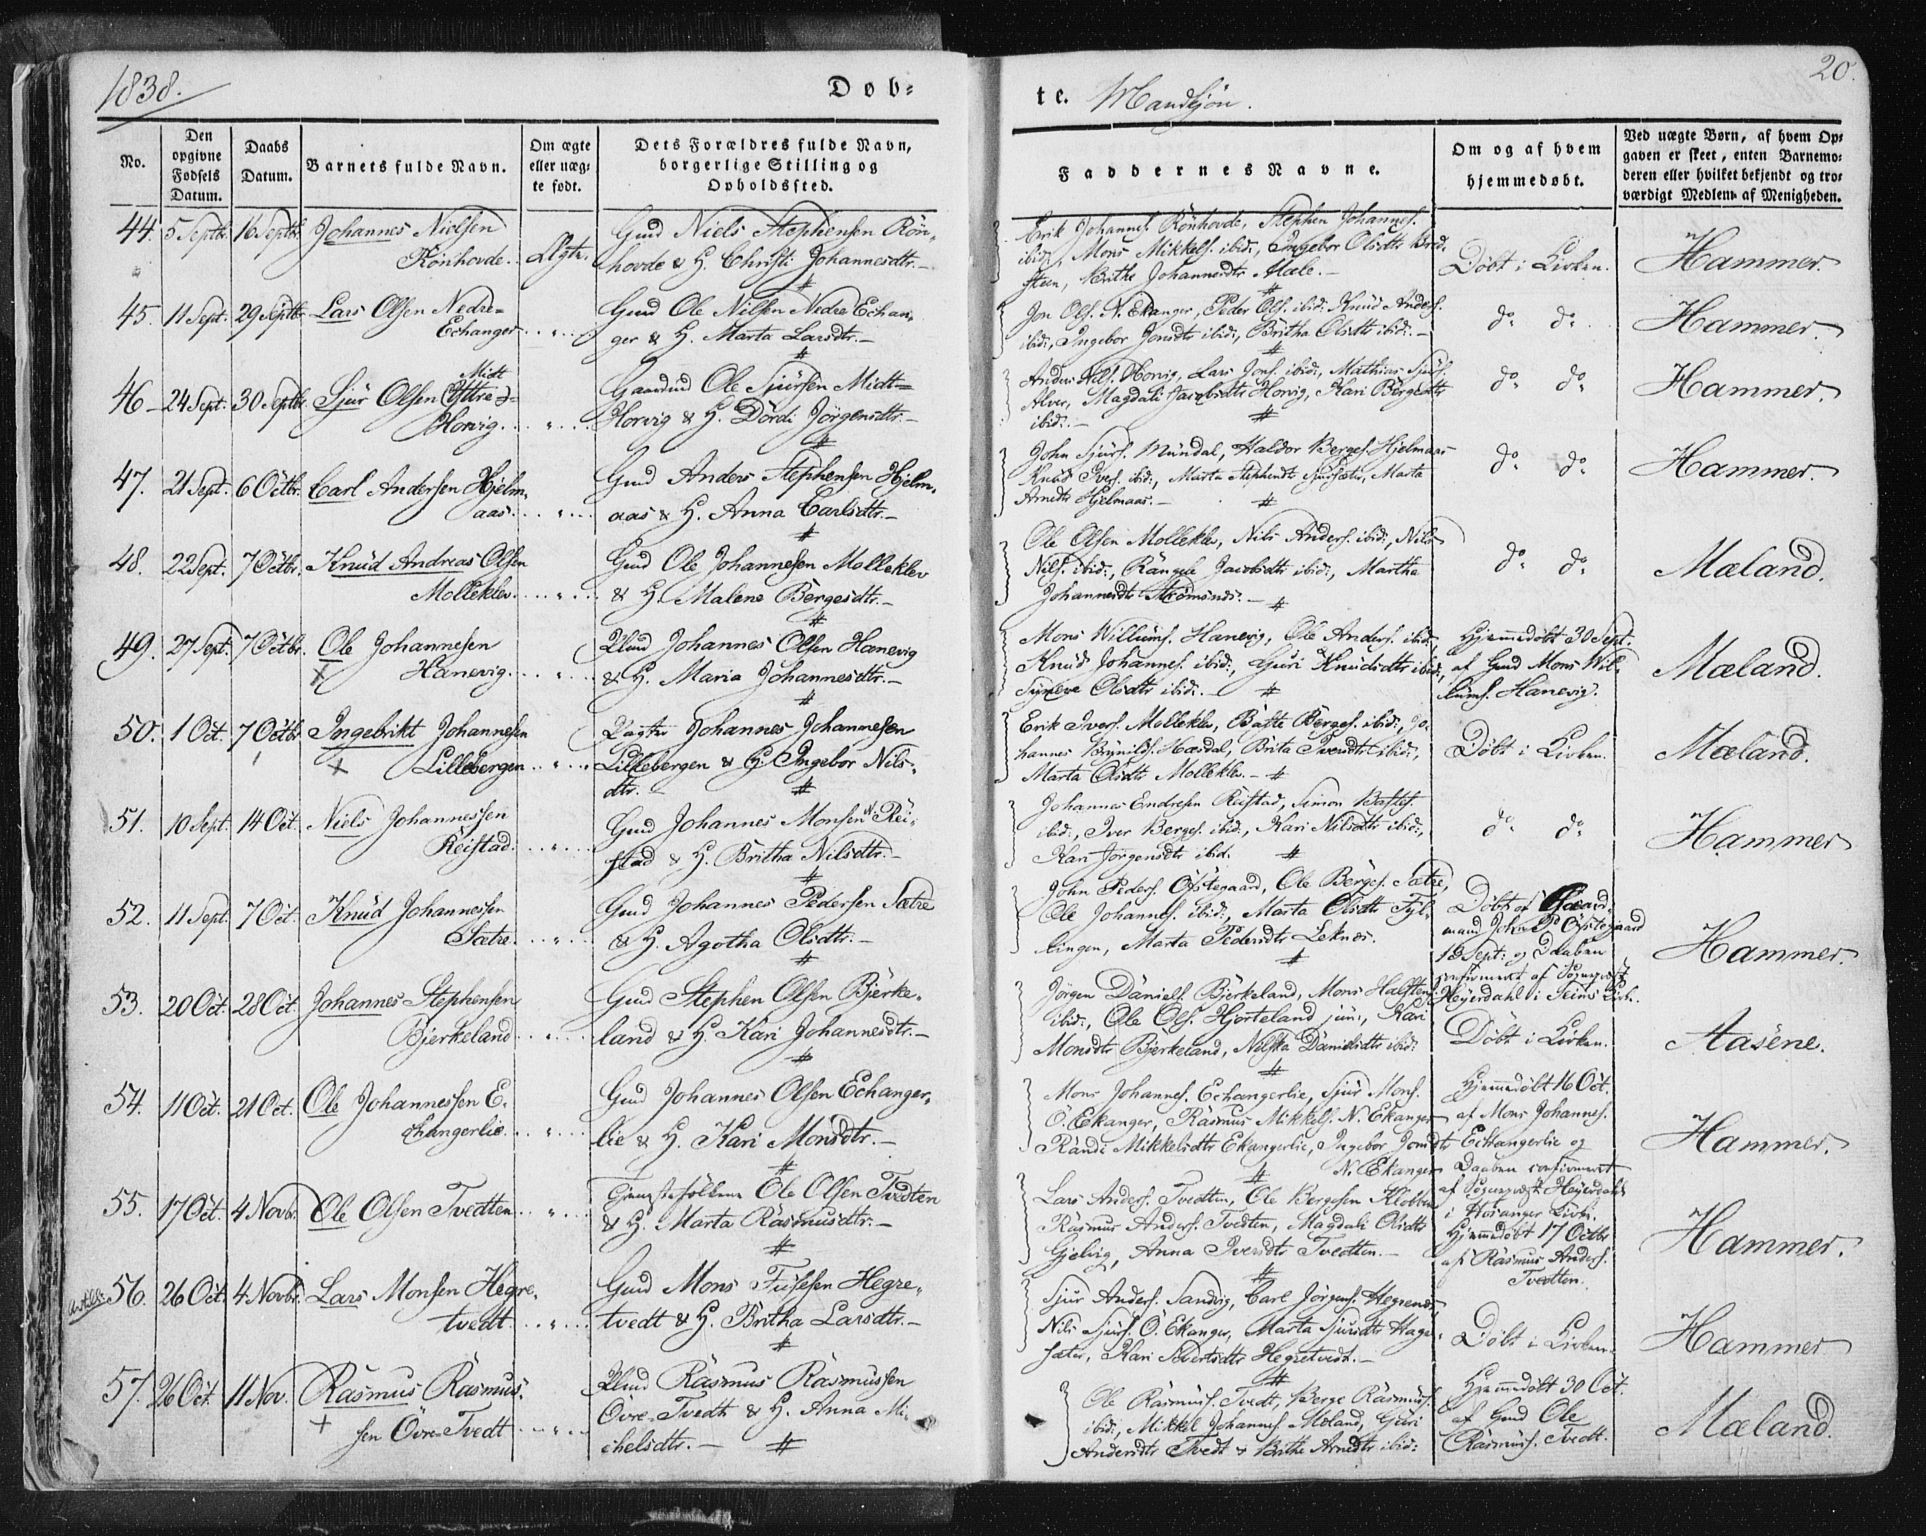 1838.
Döb-
te. Mandkjön.
20.
No.
Den opgivne Fødsels Datum.
Daabs Datum.
Barnets fulde Navn.
Om ægte eller uæg- te født.
Dets Forældres fulde Navn, borgerlige Stilling og Opholdssted.
Faddernes Navne.
Om og af hvem hjemmedøbt.
Ved uægte Børn, af hvem Op- gaven er skeet, enten Barnemo- deren eller hvilket bekjendt og tro- værdigt Medlem af Menigheden.
44. 5 Septbr. 16 Septbr. Johannes Nielsen
Rönhovde. Ægte.
Gmd Niels Stephensen Rön-
hovde & H. Christi Johannesdtr.
Erik Johannes. Rönhovde, Stephen Johannes.
ibid:, Mons Mikkels. ibid:, Engebor Olsdtr Bred-
steen, Brithe Johannesdtr Mæle.
Döbt i Kirken. Hammer.
45. 11 Sept. 29 Septbr. Lars Olsen Nedre-
Echanger
Gmd Ole Nilsen Nedre Echan-
ger & H. Marta Larsdtr.
Jon Ols. N. Ekanger, Peder Ols. ibid: Knud Anders.
ibid:, Ingebor Jonsdtr ibid:, Britha Olsdtr ibid:
do do Hammer.
46 24 Sept. 30 Septbr. Sjur Olsen (Yttre) Midt
Horvig.
Gaardmd Ole Sjursen Midt-
Horvig & H. Dördi Jörgensdtr.
Anders Nils. Horvig, Lars Jons. ibid:, Mathias Sjurs.
Alver, Magdali Jacobsdtr Horvig, Kari Bergesdtr
ibid:
do do Hammer.
47. 21 Sept. 6 Octbr. Carl Andersen Hjelm-
aas.
Gmd Anders Stephensen Hjelm-
aas & H. Anna Carlsdtr.
John Sjurs. Mundal, Haldor Berges. Hjelmaas
Knud Ivers. ibid:, Marta Stephensdtr Sjursæter, Marta
Arnedtr Hjelmaas.
do do Hammer.
48. 22 Sept. 7 Octbr. Knud Andreas Olsen
Molleklev.
Gmd Ole Johannesen Molleklev
& H. Malene Bergesdtr.
Ole Olsen Molleklev, Nils Anders. ibid:, Nils
Nils. ibid:, Rangele Jacobsdtr ibid:, Marthe
Johannesdtr Strömsnes.
do do Mæland.
49. 27 Sept. 7 Octbr. Ole Johannesen
Hanevig.
Johannes Olsen Hanevig
& H. Maria Johannesdtr.
Mons Willums. Hanevig, Ole Anders. ibid:,
Knud Johannes. ibid:, Guri Knudsdtr ibid:,
Syneve Olsdtr ibid:
Hjemmedöbt 30 Sept.
af Gmd Mons Wil-
lums. Hanevig.
Mæland.
50. 1 Oct. 7 Octbr Ingebrikt Johannesen
Lillebergen
Johannes Johannesen
Lillebergen & H. Ingebor Nils-
dtr.
Erik Ivers. Molleklev, Baste Berges. ibid:, Jo-
hannes Brynilds. Hæsdal, Brita Iversdtr ibid:,
Marta Olsdtr Molleklev.
Döbt i Kirken. Mæland.
51. 10 Sept. 14 Oct. Niels Johannessen
Reistad.
Gmd Johannes Monsen N. Rei-
stad & H. Britha Nilsdtr.
Johannes Endresen Reistad, Simon Bastes.
ibid:, Iver Berges. ibid:, Kari Nilsdtr ibid:,
Kari Jörgensdtr ibid.
do do Hammer
52. 11 Sept. 7 Oct. Knud Johannessen
Sætre.
Gmd Johannes Pedersen Sætre
& H. Agotha Olsdtr.
John Peders. Öfstegaard, Ole Berges. Sætre,
Ole Johannes. ibid:, Marta Olsdtr Fyl-
lingen, Marta Pedersdtr Leknes.
Döbt af Gaard-
mand John P. Öfstegaard
Sept: og Daaben
confirmeret af Sognepræst
Heyerdahl i Seims Kirke.
Hammer.
53. 20 Oct. 28 Oct. Johannes Stephensen
Bjerkeland
Gmd Stephen Olsen Bjerke-
land & H. Kari Johannesdtr.
Jörgen Daniels. Bjerkeland, Mons Halstens.
ibid:, Ole Ols. Hjorteland jun:, Kari
Monsdtr Bjerkeland, Nilska Danielsdtr ibid:
Döbt i Kirken. Aaséne.
54. 11 Oct. 21 Oct. Ole Johannessen E-
changerlie.
Gmd Johannes Olsen Echanger-
lie & H. Kari Monsdtr.
Mons Johannes. Echangerlie, Sjur Mons.
Ö. Ekanger, Rasmus Mikkels. N. Ekanger
Randi Mikkelsdtr Ekangerlie, Ingebor Jonsdtr
N. Ekanger
Hjemmedöbt 16 Oct.
af Mons Johannes.
Echangerlie og
Daaben confirmeret
af Sognepræst Heyerdahl
i Hosanger Kirke.
Hammer.
55. 17 Oct. 4 Novbr. Ole Olsen Tvedten
Ole Olsen Tvedten
& H. Marta Rasmusdtr.
Lars Anders. Tvedten, Ole Bergesen Klobben
Rasmus Anders. Tvedten, Magdali Olsdtr
Gjelvig, Anna Iversdtr Tvedten.
Hjemmedöbt 17 Octbr
af Rasmus Anders.
Tvedten.
Hammer.
56. 26 Oct. 4 Novbr. Lars Monsen Hegre-
tvedt
Gmd Mons Hegre-
tvedt & H. Britha Larsdtr.
Sjur Anders. Sandvig, Carl Jörgens. Hegrenes,
Nils Sjurs. Ö. Ekanger, Marta Sjursdtr Hage-
sæter, Kari Sjurtsdtr Hegretvedt.
Döbt i Kirken. Hammer
57. 26 Oct. 11 Nov. Rasmus Rasmus-
sen Övre-Tvedt
Rasmus Rasmussen
Övre-Tvedt & H. Anna Mi-
chelsdtr.
Ole Rasmus. Tvedt, Berge Rasmus.
ibid:, Mikkel Johannes. Mæland, Guri
Andersdtr Tvedt & Brithe Arnedtr ibid:
Hjemmedöbt 30 Oct.
af Gmd Ole
Rasmus. Tvedt.
Mæland.